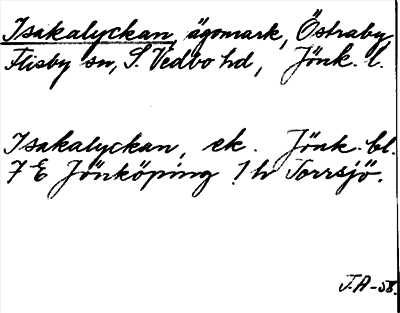 Isakalyckan, ägomark, Östraby
Flisby sn, S. Vedbo hd, Jönk. l.
Isakalyckan, ek. Jönk. bl.
7 E Jönköping 1 h Torrsjö.
J.A-58.